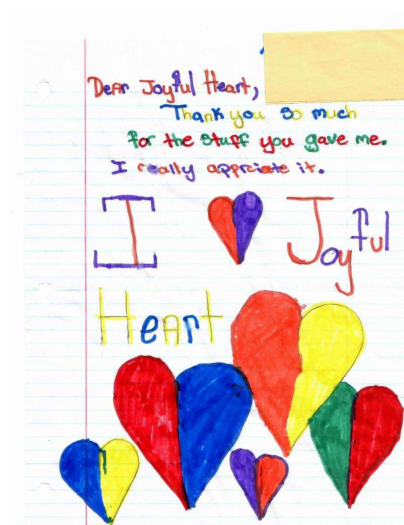 Dear Joyful Heart,
Thank you so much
for the stuff you gave me.
I really appriciate it.
I Joyful
Heart